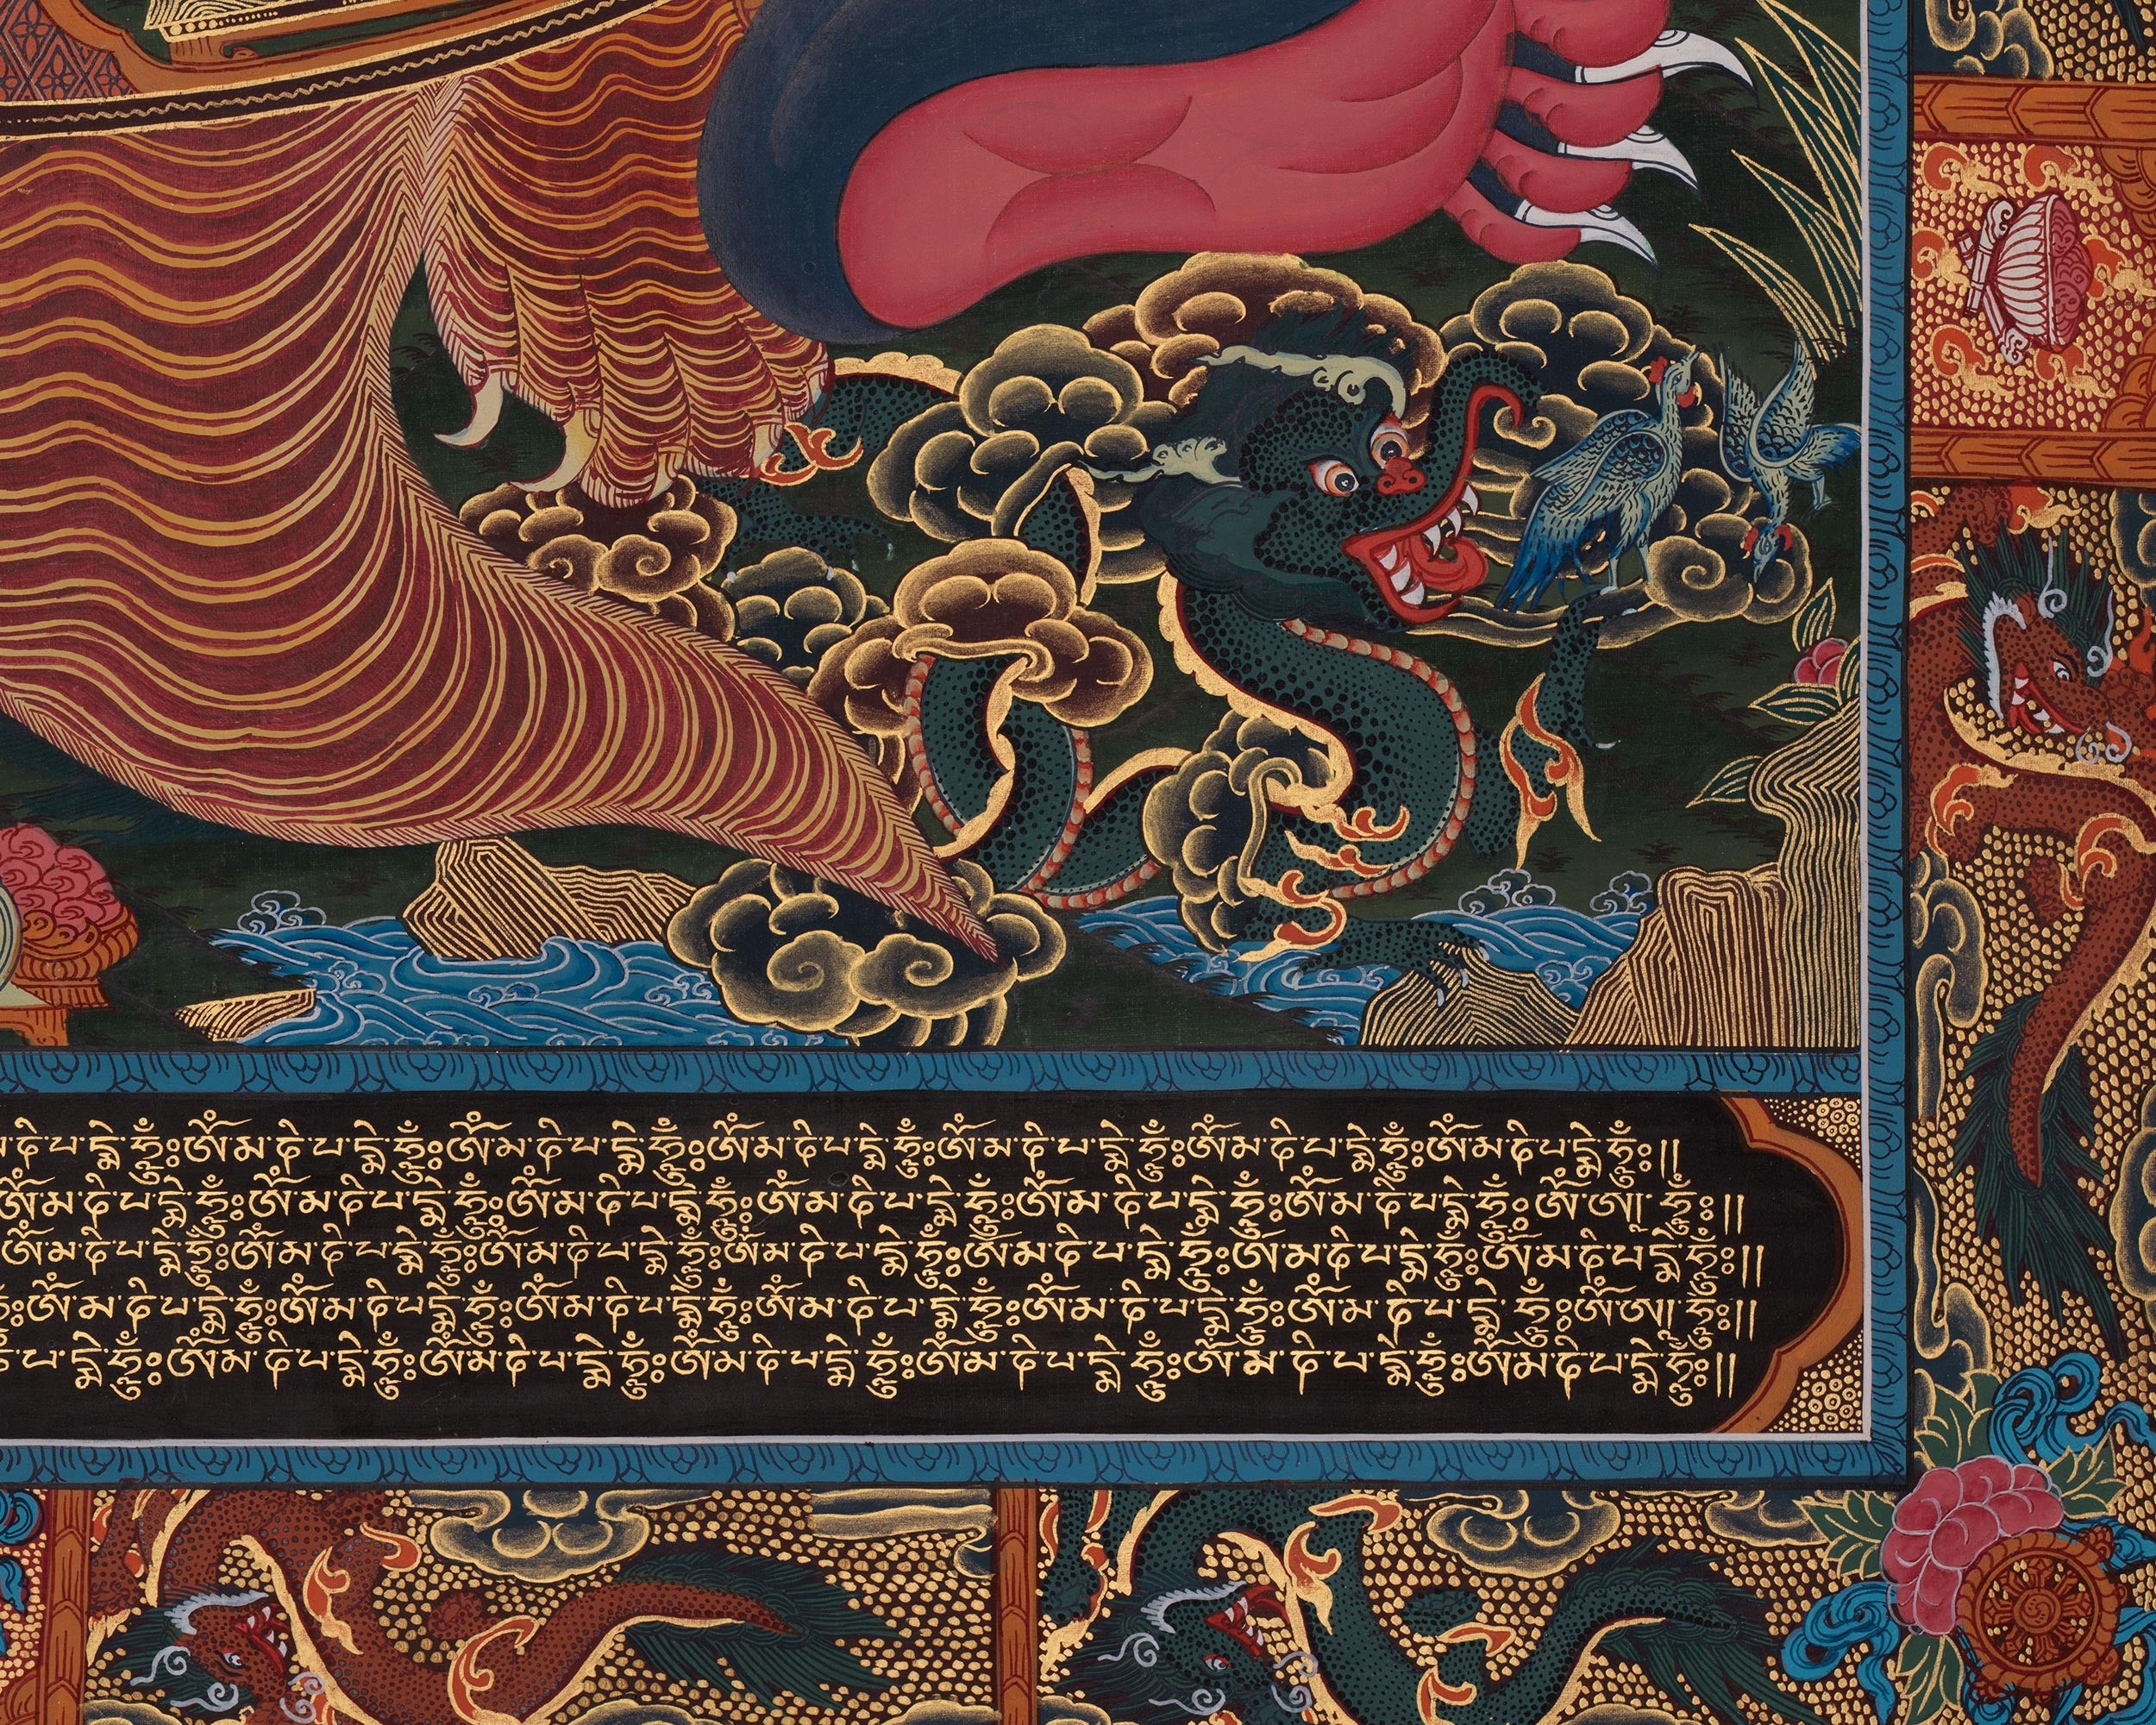 མ་ཎི་པ་དྨེ་ཧཱུྃ༔ཨོཾ་མ་ཎི་པ་དྨེ་ཧཱུྃ༔ཨོཾ་མ་ཎི་པ་དྨེ་ཧཱུྃ༔ཨོཾ་མ་ཎི་པ་དྨེ་ཧཱུྃ༔ཨོཾ་མ་ཎི་པ་དྨེ་ཧཱུྃ༔ཨོཾ་མ་ཎི་པ་དྨེ་ཧཱུྃ༔ཨོཾ་མ་ཎི་པ་དྨེ་ཧཱུྃ༔།།
ཨོཾ་མ་ཎི་པ་དྨེ་ཧཱུྃ༔ཨོཾ་མ་ཎི་པ་དྨེ་ཧཱུྃ༔ཨོཾ་མ་ཎི་པ་དྨེ་ཧཱུྃ༔ཨོཾ་མ་ཎི་པ་དྨེ་ཧཱུྃ༔ཨོཾ་མ་ཎི་པ་དྨེ་ཧཱུྃ༔ཨོཾ་མ་ཎི་པ་དྨེ་ཧཱུྃ༔ཨོཾ་ཨཱ་ཧཱུྃ༔།།
ཨོཾ་མ་ཎི་པ་དྨེ་ཧཱུྃ༔ཨོཾ་མ་ཎི་པ་དྨེ་ཧཱུྃ༔ཨོཾ་མ་ཎི་པ་དྨེ་ཧཱུྃ༔ཨོཾ་མ་ཎི་པ་དྨེ་ཧཱུྃ༔ཨོཾ་མ་ཎི་པ་དྨེ་ཧཱུྃ༔ཨོཾ་མ་ཎི་པ་དྨེ་ཧཱུྃ༔ཨོཾ་མ་ཎི་པ་དྨེ་ཧཱུྃ༔།།
ཨོཾ་མ་ཎི་པ་དྨེ་ཧཱུྃ༔ཨོཾ་མ་ཎི་པ་དྨེ་ཧཱུྃ༔ཨོཾ་མ་ཎི་པ་དྨེ་ཧཱུྃ༔ཨོཾ་མ་ཎི་པ་དྨེ་ཧཱུྃ༔ཨོཾ་མ་ཎི་པ་དྨེ་ཧཱུྃ༔ཨོཾ་མ་ཎི་པ་དྨེ་ཧཱུྃ༔ཨོཾ་ཨཱ་ཧཱུྃ༔།།
པ་དྨེ་ཧཱུྃ༔ཨོཾ་མ་ཎི་པ་དྨེ་ཧཱུྃ༔ཨོཾ་མ་ཎི་པ་དྨེ་ཧཱུྃ༔ཨོཾ་མ་ཎི་པ་དྨེ་ཧཱུྃ༔ཨོཾ་མ་ཎི་པ་དྨེ་ཧཱུྃ༔ཨོཾ་མ་ཎི་པ་དྨེ་ཧཱུྃ༔ཨོཾ་མ་ཎི་པ་དྨེ་ཧཱུྃ༔།།